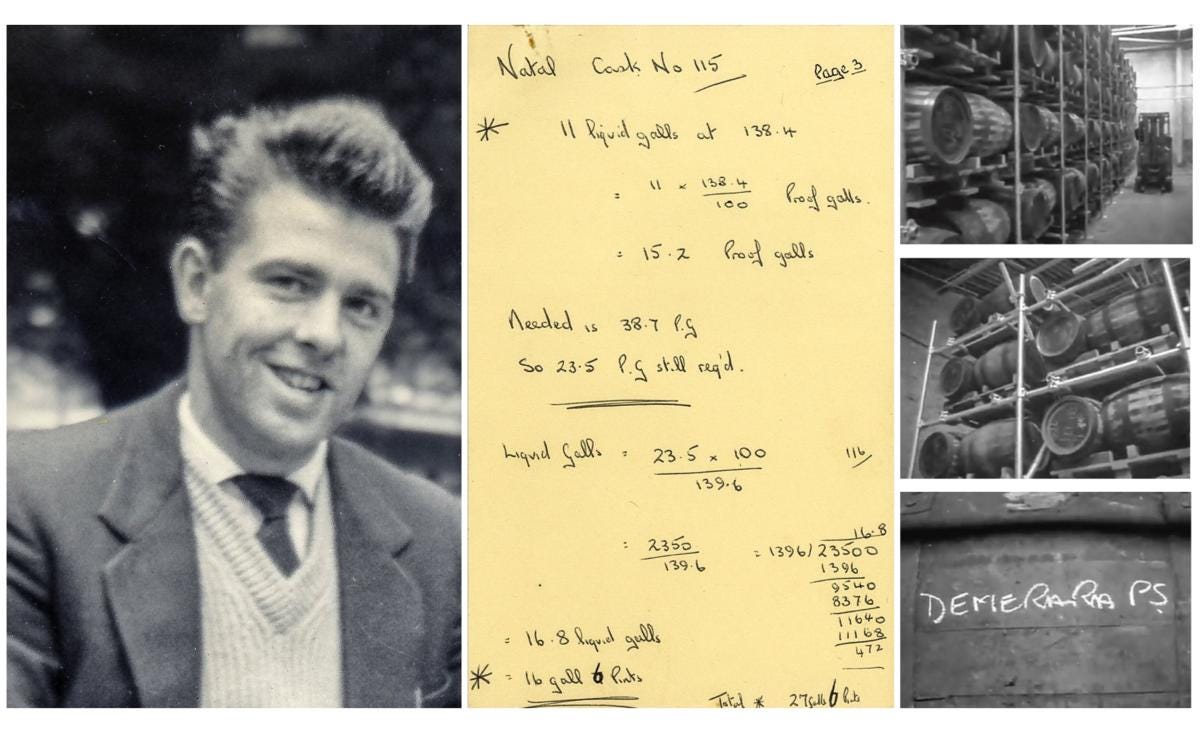 Natal Cask No 115 Page 3
* 11 liquid galls at 138.4
= 11 × 138.4 / 100 Proof galls.
= 15.2 Proof galls
Needed is 38.7 P.G
So 23.5 P.G still req'd.
Liquid Galls = 23.5 × 100 / 139.6 116
= 2350 / 139.6 = 1396/23500
16.8
1396
9540
8376
11640
11168
472
= 16.8 liquid galls
* = 16 gall 6 Pints
Total * 27 galls 6 Pints
DEMERARA PS